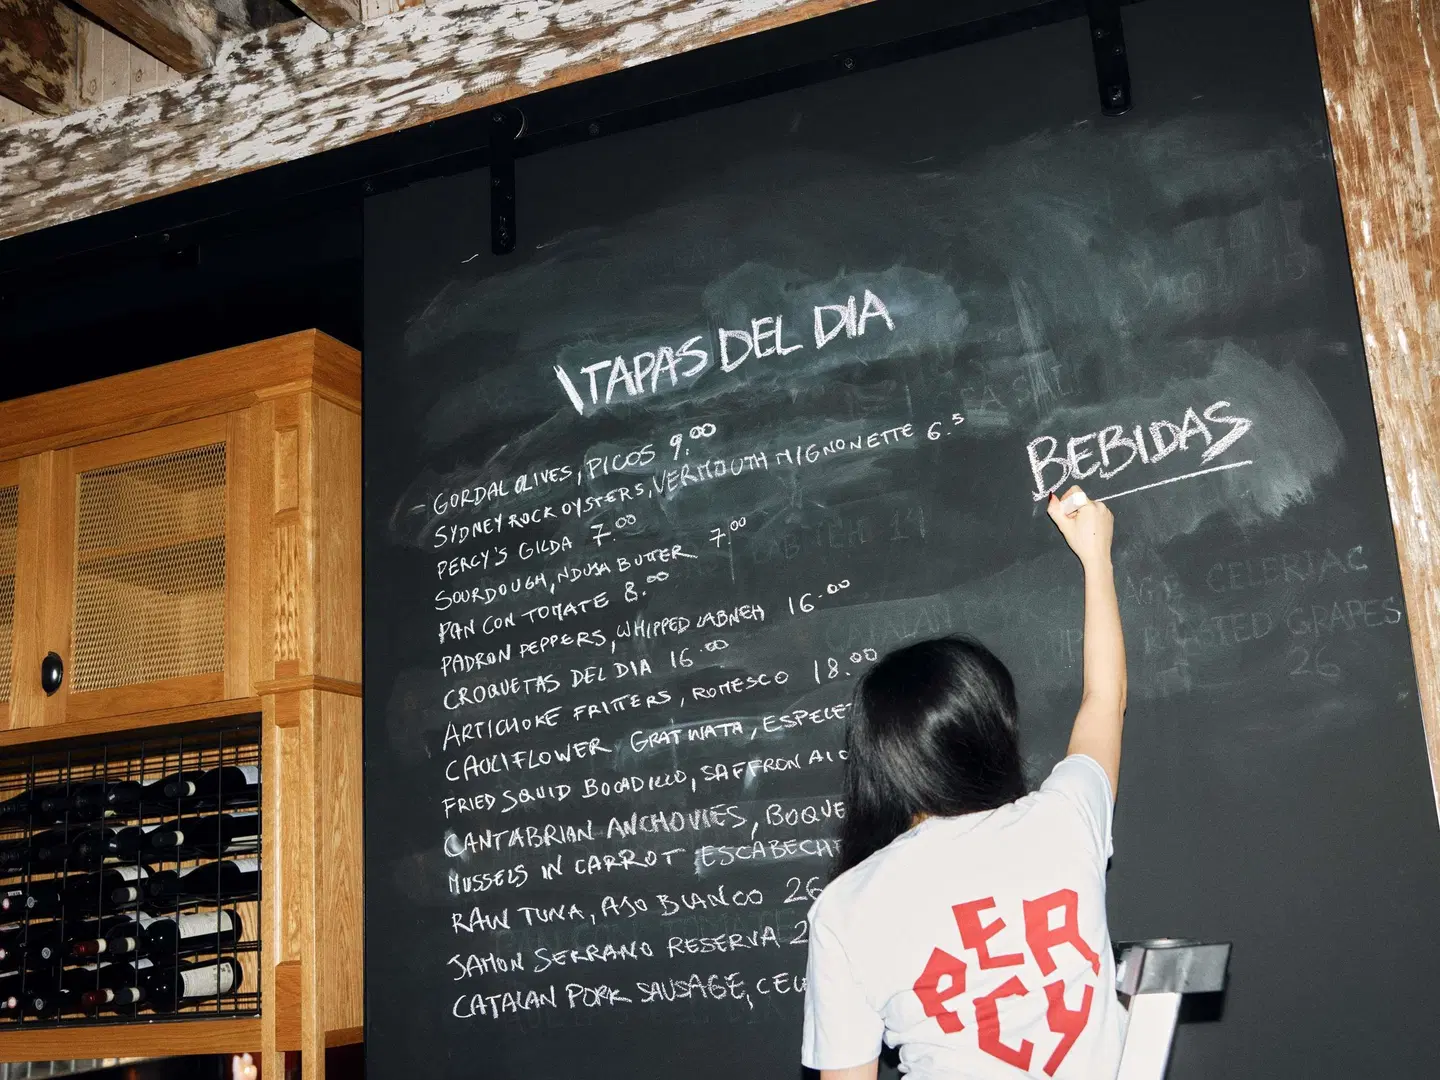 TAPAS DEL DIA
GORDAL OLIVES, PICOS 9.00
SYDNEY ROCK OYSTERS, VERMOUTH MIGNONETTE 6.5
PERCY'S GILDA 7.00
SOURDOUGH, NDUJA BUTTER 7.00
PAN CON TOMATE 8.00
PADRON PEPPERS, WHIPPED LABNEH 16.00
CROQUETAS DEL DIA 16.00
ARTICHOKE FRITTERS, ROMESCO 18.00
CAULIFLOWER GRATINATA, ESPELET
FRIED SQUID BOCADILLO, SAFFRON AIO
CANTABRIAN ANCHOVIES, BOQUE
MUSSELS IN CARROT ESCABECH
RAW TUNA, AJO BLANCO 26
JAMON SERRANO RESERVA 2
CATALAN PORK SAUSAGE, CEL
BEBIDAS
CELERIAC
ROASTED GRAPES
26
CATALAN
PERCY